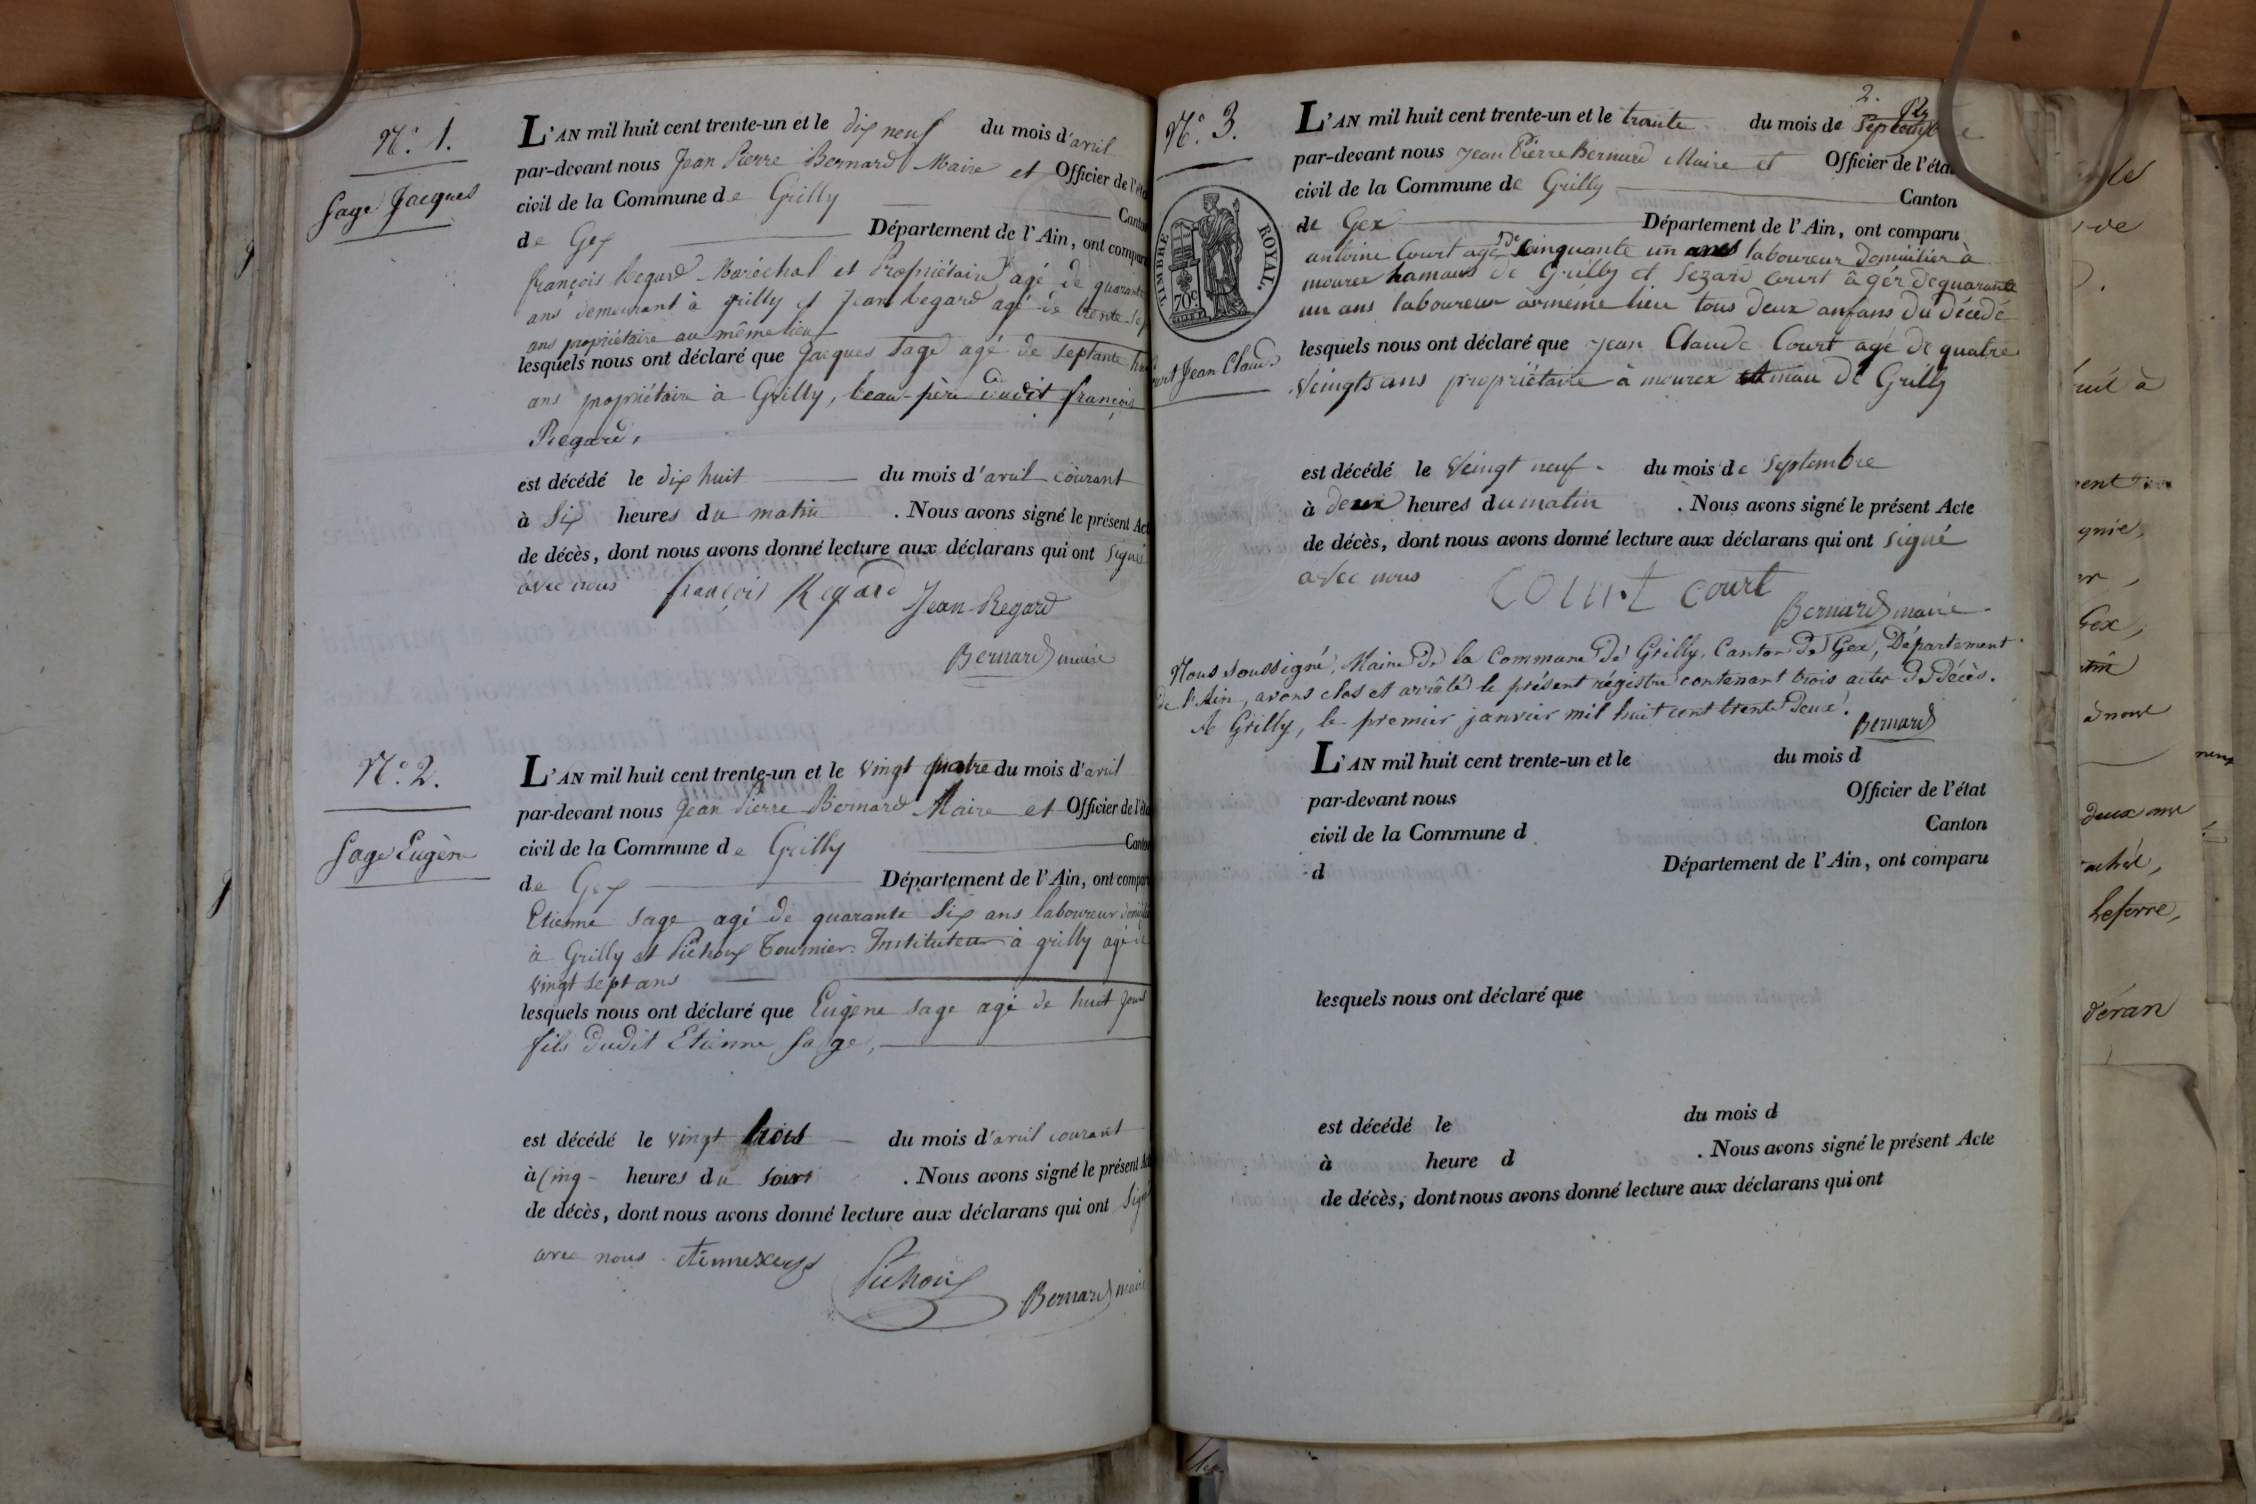 N.° 1.
Sage Jacques
L'AN mil huit cent trente-un et le dix neuf du mois d'avril
par-devant nous Jean Pierre Bernard Maire et Officier de l'éta
civil de la Commune de Grilly Canton
de Gex Département de l'Ain, ont comparu
françois Regard Maréchal et Propriétaire agé de quarante
ans demeurant à grilly et Jean Regard agé de trente sep
ans propriétaire au même lieu
lesquels nous ont déclaré que Jacques Sage agé de septante hui
ans propriétaire à Grilly, beau-père dudit françois
Regard,
est décédé le dix huit du mois d'avril courant
à Six heures du matin . Nous avons signé le présent Act
de décès, dont nous avons donné lecture aux déclarans qui ont signé
avec nous françois Regard Jean Regard
Bernard maire
N.° 2.
Sage Eugène
L'AN mil huit cent trente-un et le vingt quatre du mois d'avril
par-devant nous Jean Pierre Bernard Maire et Officier de l'éta
civil de la Commune de Grilly Canton
de Gex Département de l'Ain, ont comparu
Etienne Sage agé de quarante Six ans laboureur domicilié
à Grilly et Pichoux Tournier Instituteur à grilly agé de
vingt sept ans
lesquels nous ont déclaré que Eugène Sage agé de huit jours
fils dudit Etienne Sage,
est décédé le vingt trois du mois d'avril courant
à Cinq heures du soir . Nous avons signé le présent Act
de décès, dont nous avons donné lecture aux déclarans qui ont signé
avec nous
Pichoux
Bernard maire
2.
N.° 3.
TIMBRE ROYAL.
70c.
Court Jean Claude
L'AN mil huit cent trente-un et le trante du mois de Septembre
par-devant nous Jean Pierre Bernard Maire et Officier de l'état
civil de la Commune de Grilly Canton
de Gex Département de l'Ain, ont comparu
antoine Court agé de cinquante un ans laboureur domicilier à
mourex hamaus de Grilly et Sezard Court âgér de quarante
un ans laboureur au même lieu tous deux anfans du décédé
lesquels nous ont déclaré que Jean Claude Court agé de quatre
Veingts ans propriétaire à mourex amau de Grilly
est décédé le Veingt neuf du mois de Septembre
à deux heures du matin . Nous avons signé le présent Acte
de décès, dont nous avons donné lecture aux déclarans qui ont signé
avec nous court court
Bernard maire
Nous soussigné, Maire de la Commune de Grilly, Canton de Gex, Département
de l'Ain, avons clos et arrêté le présent régistre contenant trois actes de décès.
A Grilly, le premier janvier mil huit cent trente deux.
Bernard
L'AN mil huit cent trente-un et le du mois d
par-devant nous Officier de l'état
civil de la Commune d Canton
d Département de l'Ain, ont comparu
lesquels nous ont déclaré que
est décédé le du mois d
à heure d . Nous avons signé le présent Acte
de décès, dont nous avons donné lecture aux déclarans qui ont